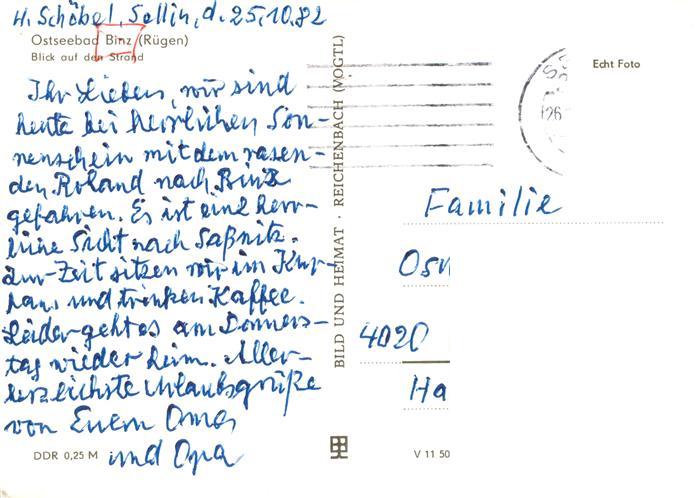 H. Schöbel, Sellin, d. 25.10.82
Ostseebad Binz (Rügen)
Blick auf den Strand
Ihr Lieben, wir sind
heute bei herrlichen Son-
nenschein mit dem rasen-
den Roland nach Binz
gefahren. Es ist eine herr-
liche Sicht nach Saßnitz.
Zur Zeit sitzen wir im Kur-
haus und trinken Kaffee.
Leider geht es am Donners-
tag wieder heim. Aller-
herzlichste Urlaubsgrüße
von Euern Oma
und Opa
DDR 0,25 M
BILD UND HEIMAT · REICHENBACH (VOGTL)
Echt Foto
26.
Familie
Osw
4020
Ha
V 11 50